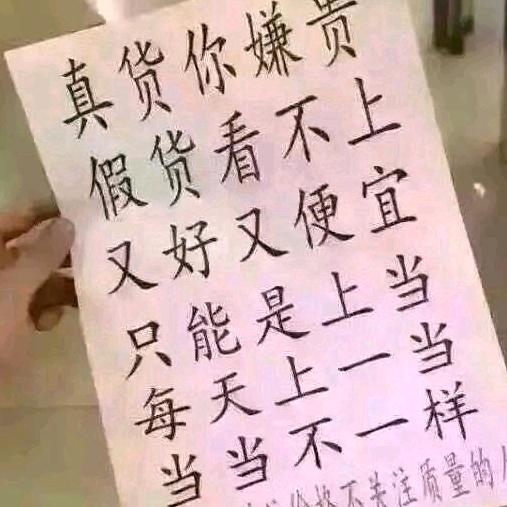 真货你嫌贵
假货看不上
又好又便宜
只能是上当
每天上一当
当当不一样
不关注质量的